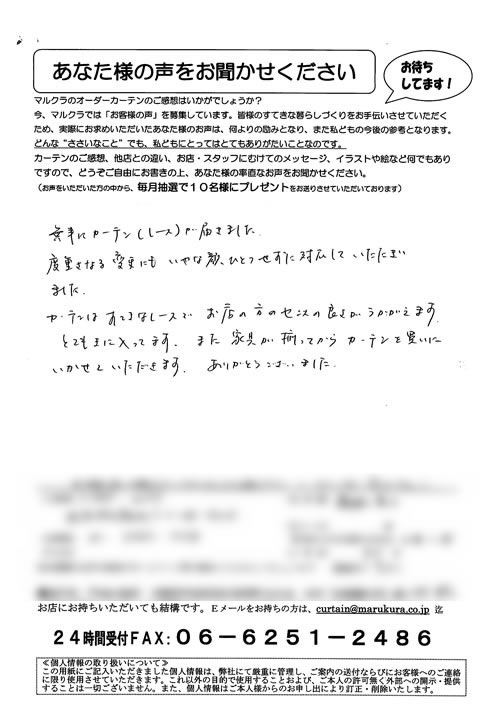 あなた様の声をお聞かせください
お待ち
してます！
マルクラのオーダーカーテンのご感想はいかがでしょうか？
今、マルクラでは「お客様の声」を募集しています。皆様のすてきな暮らしづくりをお手伝いさせていただく
ため、実際にお求めいただいたあなた様のお声は、何よりの励みとなり、また私どもの今後の参考となります。
どんな“ささいなこと”でも、私どもにとってはとてもありがたいことなのです。
カーテンのご感想、他店との違い、お店・スタッフにむけてのメッセージ、イラストや絵など何でもあり
ですので、どうぞご自由にお書きの上、あなた様の率直なお声をお聞かせください。
（お声をいただいた方の中から、毎月抽選で１０名様にプレゼントをお送りさせていただいております）
無事にカーテン(レース)が届きました。
度重なる変更にも いやな顔、ひとつせずに対応していただい
ました。
カーテンはすてきなレースで お店の方のセンスの良さがうかがえます。
とても気に入ってます。 また 家具が揃ってから カーテンを買いに
いかせていただきます。 ありがとうございました。
お店にお持ちいただいても結構です。Ｅメールをお持ちの方は、curtain@marukura.co.jp 迄
２４時間受付FAX:０６－６２５１－２４８６
≪個人情報の取り扱いについて≫
この用紙にご記入いただきました個人情報は、弊社にて厳重に管理し、ご案内の送付ならびにお客様へのご連絡
に限り使用させていただきます。これ以外の目的で使用することおよび、ご本人の許可無く外部への開示・提供
することは一切ございません。また、個人情報はご本人様からのお申し出により訂正・削除いたします。